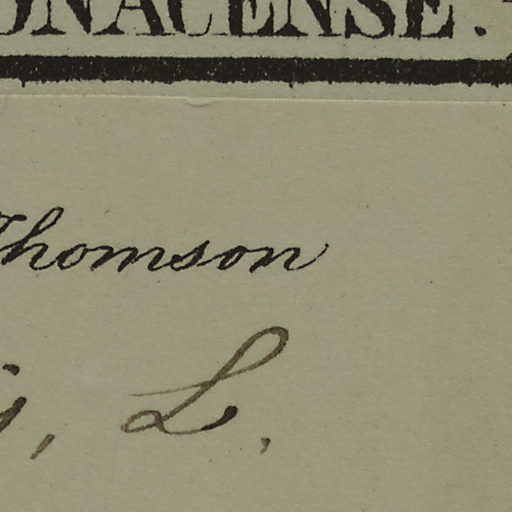 ONACENSE.
Thomson
s, L.